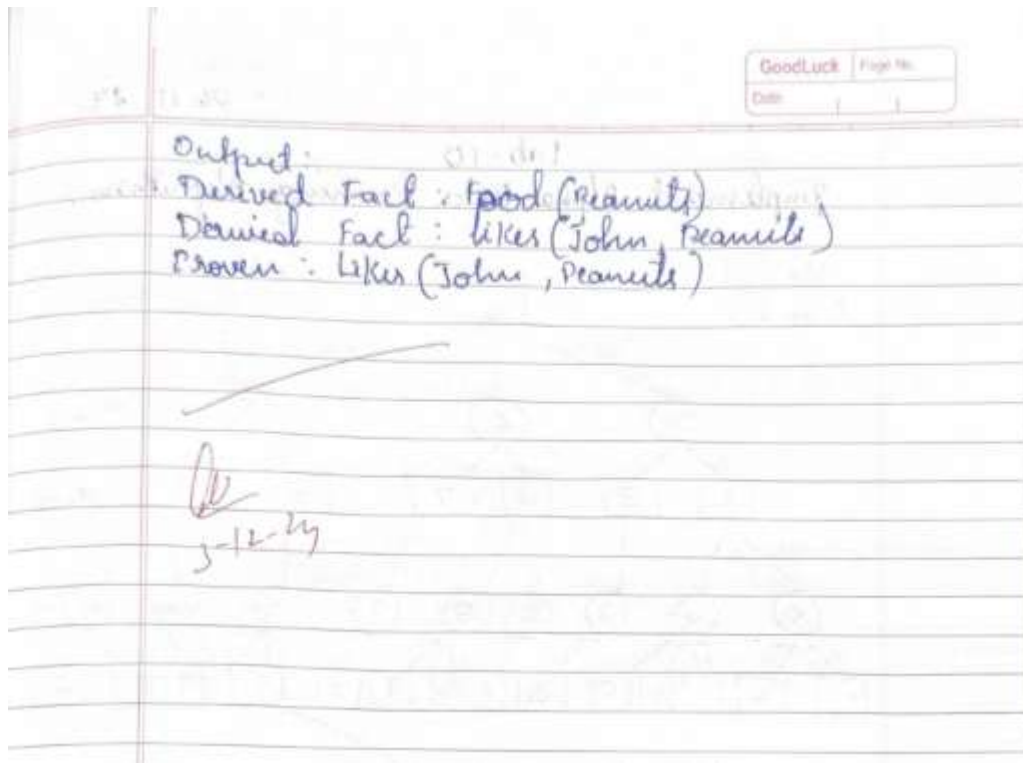 GoodLuck Page No.
Date
Output:
Derived Fact : Food (Peanuts)
Derived Fact : Likes (John, Peanuts)
Proven : Likes (John, Peanuts)
3-12-24